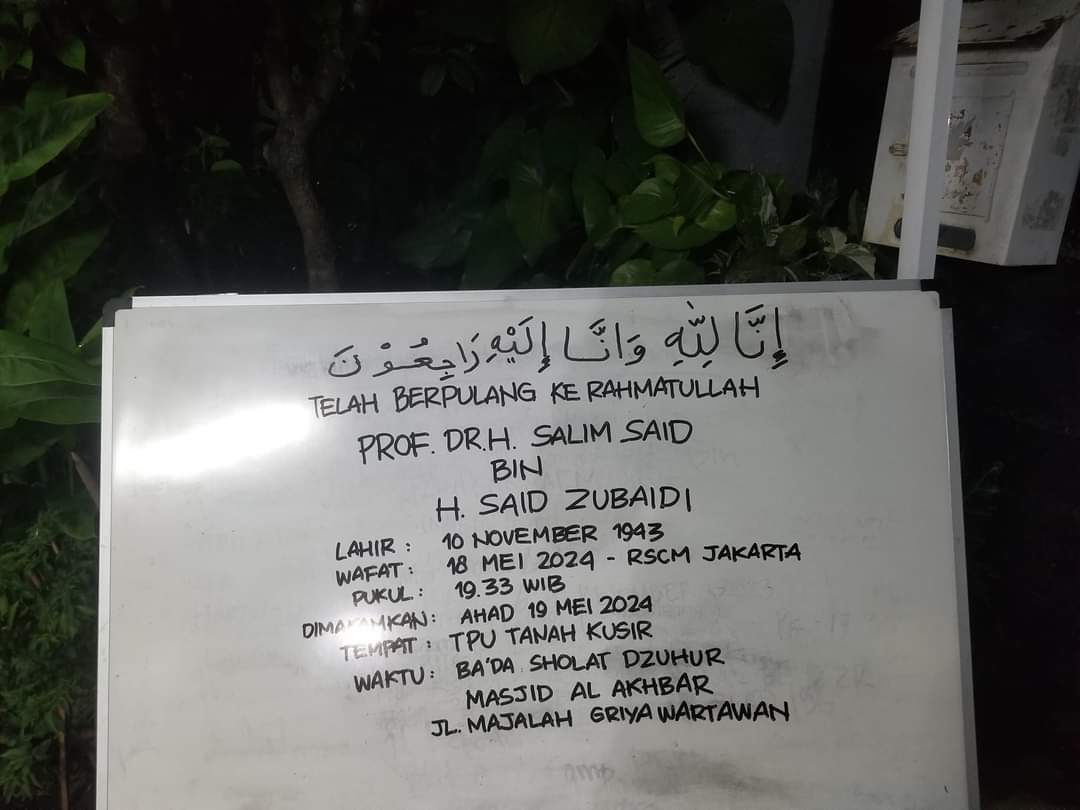 إِنَّا لِلّٰهِ وَاِنَّا إِلَيْهِ رَاجِعُوْنَ
TELAH BERPULANG KE RAHMATULLAH
PROF. DR.H. SALIM SAID
BIN
H. SAID ZUBAIDI
LAHIR : 10 NOVEMBER 1943
WAFAT : 18 MEI 2024 - RSCM JAKARTA
PUKUL : 19.33 WIB
DIMAKAMKAN : AHAD 19 MEI 2024
TEMPAT : TPU TANAH KUSIR
WAKTU : BA'DA SHOLAT DZUHUR
MASJID AL AKHBAR
JL. MAJALAH GRIYA WARTAWAN